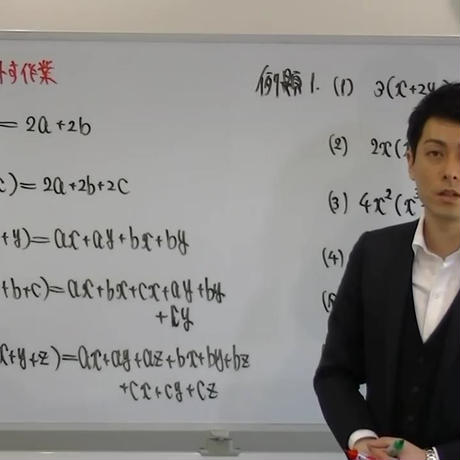 外す作業
= 2a+2b
c) = 2a+2b+2c
+y) = ax+ay+bx+by
+b+c) = ax+bx+cx+ay+by
+cy
x+y+z) = ax+ay+az+bx+by+bz
+cx+cy+cz
例題1. (1) 3(x+2y)
(2) 2x(
(3) 4x²(x³
(4)